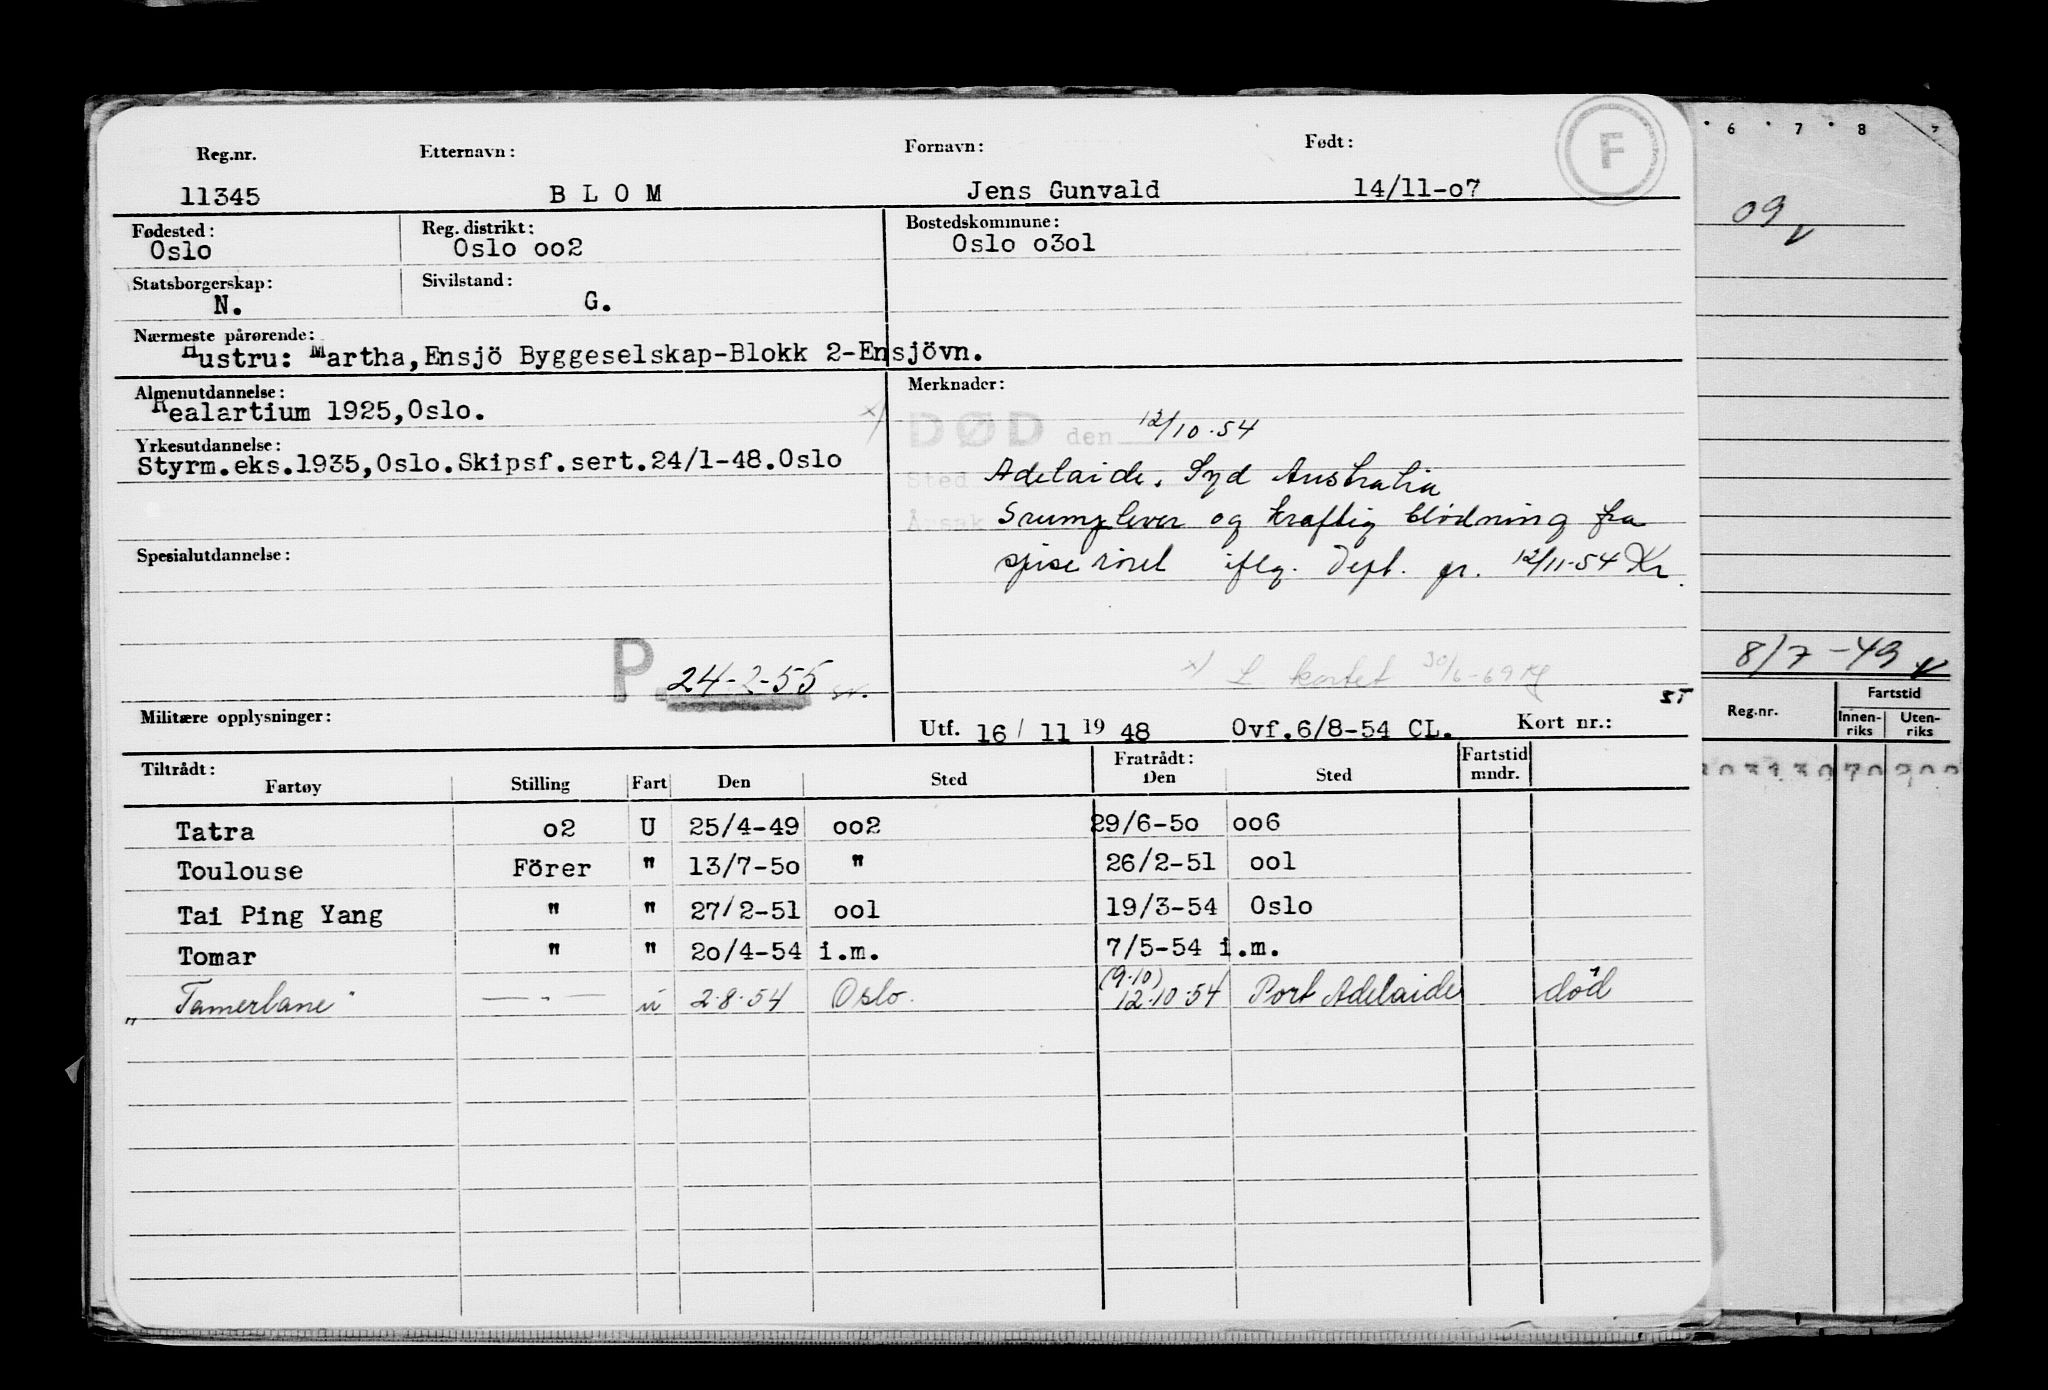 Reg.nr. Etternavn: Fornavn: Født: F
11345 B L O M Jens Gunvald 14/11-o7
Fødested: Reg. distrikt: Bostedskommune:
Oslo Oslo oo2 Oslo o3o1
Statsborgerskap: Sivilstand:
N. G.
Nærmeste pårørende:
Hustru: Martha,Ensjö Byggeselskap-Blokk 2-Ensjövn.
Almenutdannelse: Merknader:
Realartium 1925,Oslo. x) DØD den 12/10.54
Yrkesutdannelse:
Styrm.eks.1935,Oslo.Skipsf.sert.24/1-48.Oslo
Sted Adelaide. Syd Australia
Årsak Srumplever og kraftig blödning fra
Spesialutdannelse:
spiseröret iflg. Dept. pr. 12/11-54 Kr.
P 24-2-55
x) L kortet 30/6-69
Militære opplysninger: Utf. 16/ 11 19 48 Ovf.6/8-54 CL. Kort nr.: ST
Tiltrådt: Fratrådt: Fartstid
Fartøy Stilling Fart Den Sted Den Sted mndr.
Tatra o2 U 25/4-49 oo2 29/6-5o oo6
Toulouse Förer " 13/7-5o " 26/2-51 oo1
Tai Ping Yang " " 27/2-51 oo1 19/3-54 Oslo
Tomar " " 2o/4-54 i.m. 7/5-54 i.m.
(9.10)
"Tamerlane" — " — u 2.8.54 Oslo. 12.10.54 Port Adelaide död
6 7 8
09
8/7-49
Fartstid
Reg.nr. Innen-riks Uten-riks